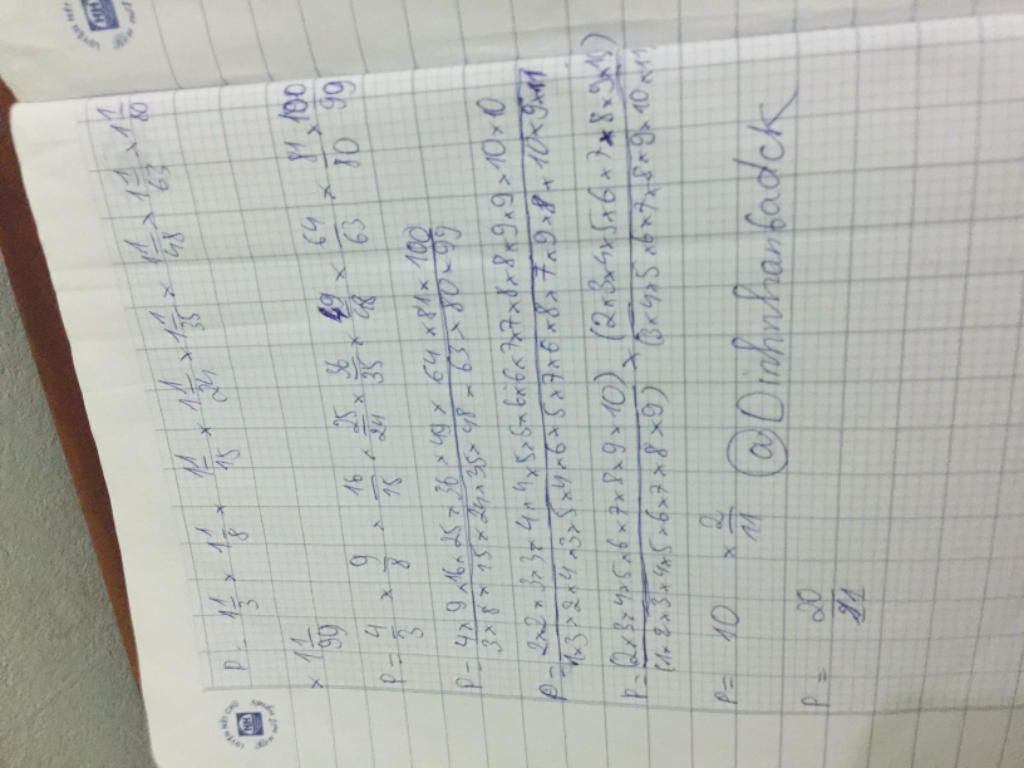 P = 1 1/3 × 1 1/8 × 1 1/15 × 1 1/24 × 1 1/35 × 1 1/48 × 1 1/63 × 1 1/80
× 1 1/99
P = 4/3 × 9/8 × 16/15 × 25/24 × 36/35 × 49/48 × 64/63 × 81/80 × 100/99
P = 4×9×16×25×36×49×64×81×100 / 3×8×15×24×35×48×63×80×99
P = 2×2×3×3×4×4×5×5×6×6×7×7×8×8×9×9×10×10 / 1×3×2×4×3×5×4×6×5×7×6×8×7×9×8×10×9×11
P = (2×3×4×5×6×7×8×9×10) × (2×3×4×5×6×7×8×9×10) / (1×2×3×4×5×6×7×8×9) (3×4×5×6×7×8×9×10×11)
P = 10 × 2/11
@Dinhnhanbadck
P = 20/11